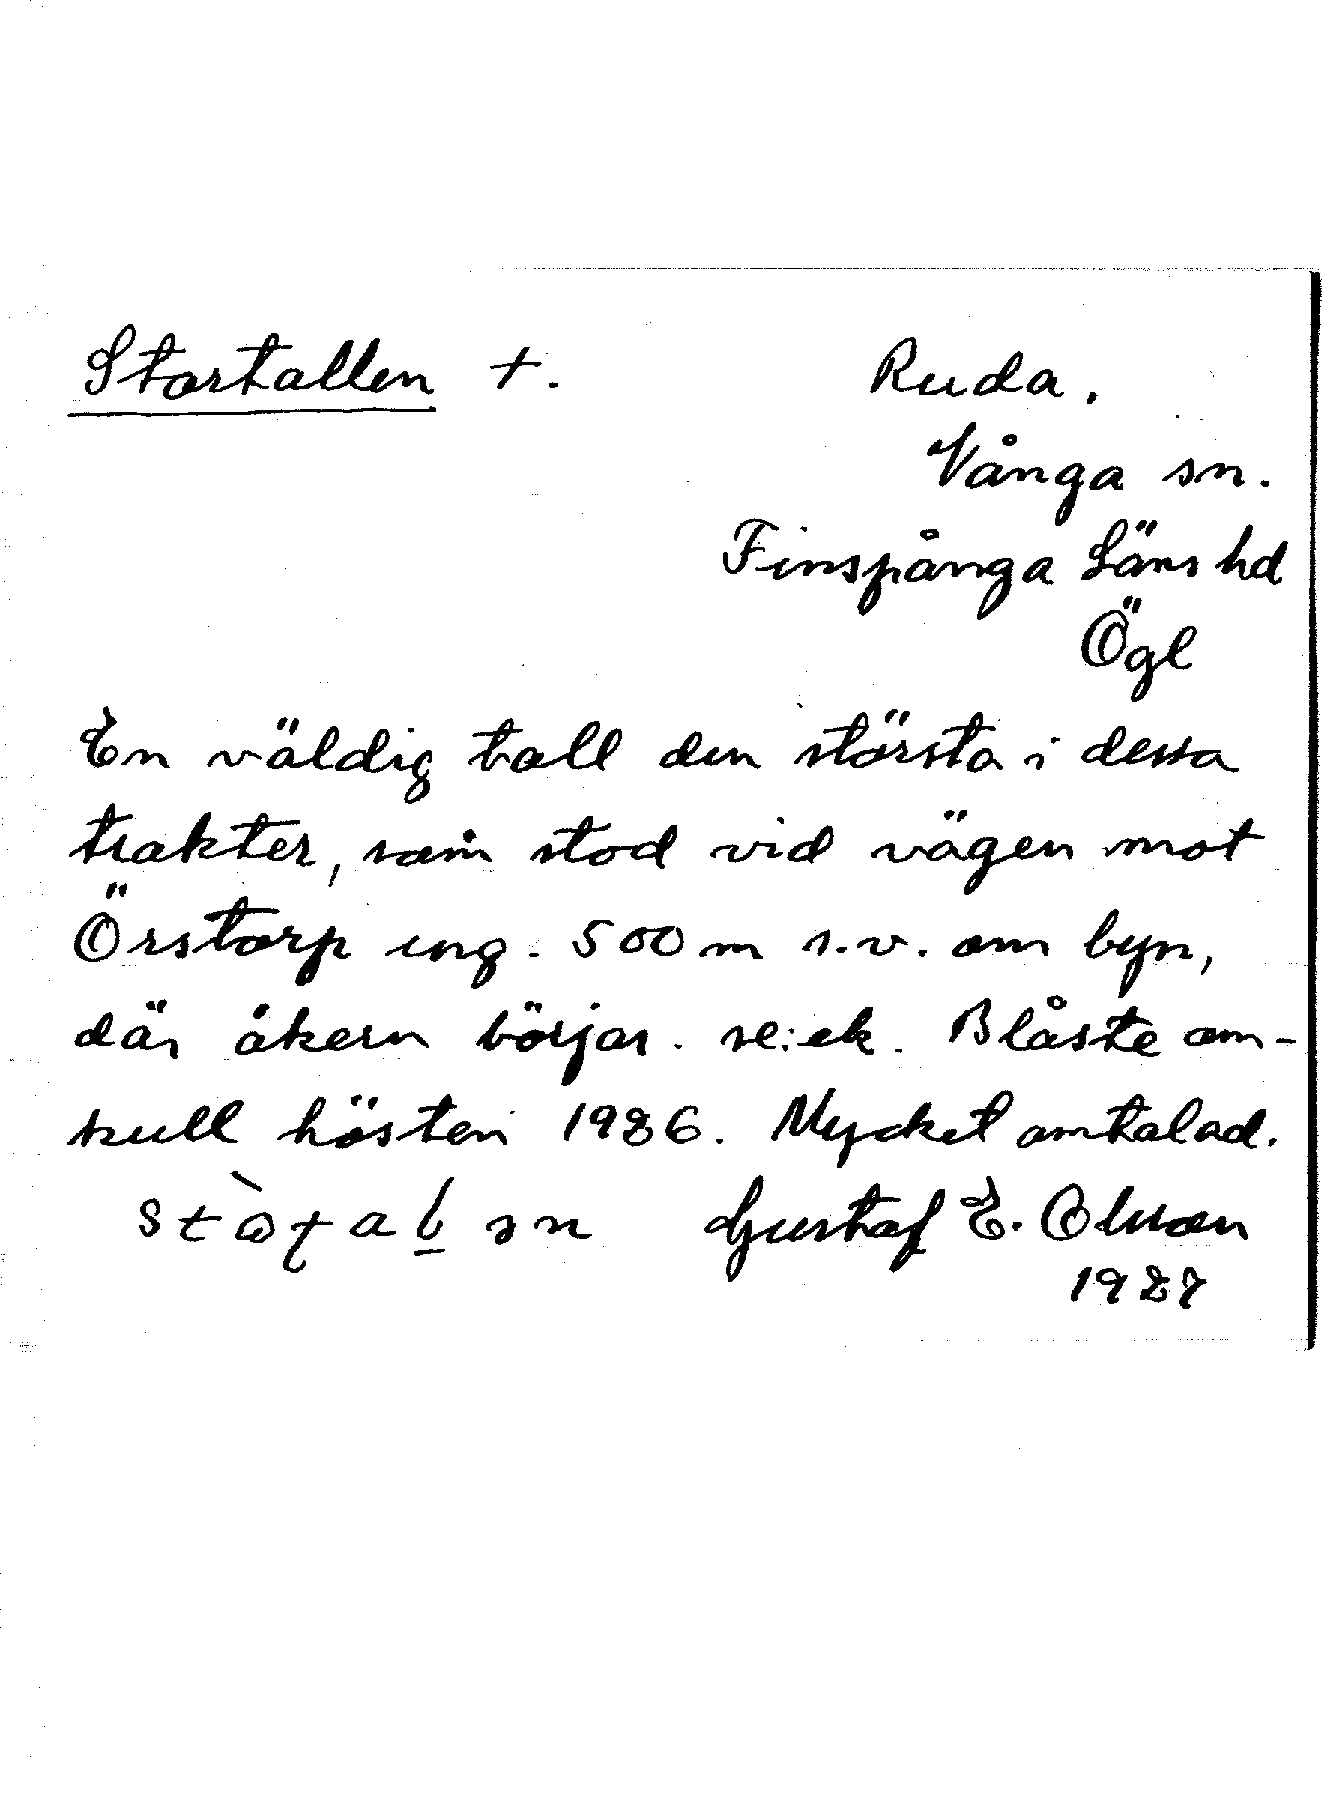 Stortallen +. Ruda.
Vånga sn.
Finspånga Läns hd
Ögl
En väldig tall den största i dessa
trakter, som stod vid vägen mot
Örstorp ung. 500 m s.v. om byn,
där åkern börjar. se: ek. Blåste om-
kull hösten 1986. Mycket omtalad.
Gustaf E. Olsson
1987